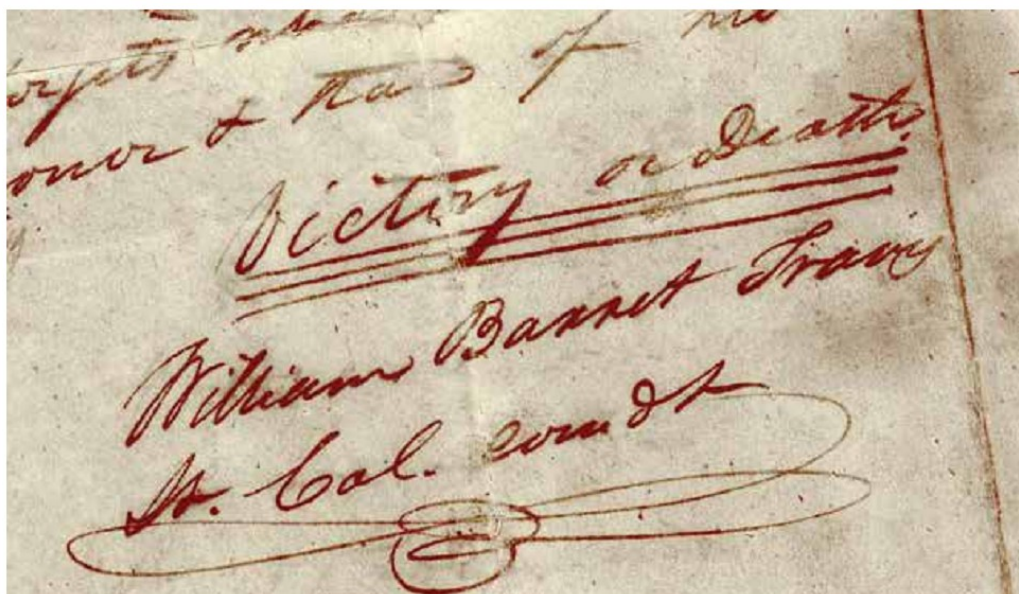 orgets wha
onor & that of his
Victory or Death.
William Barret Travis
Lt. Col. comdt